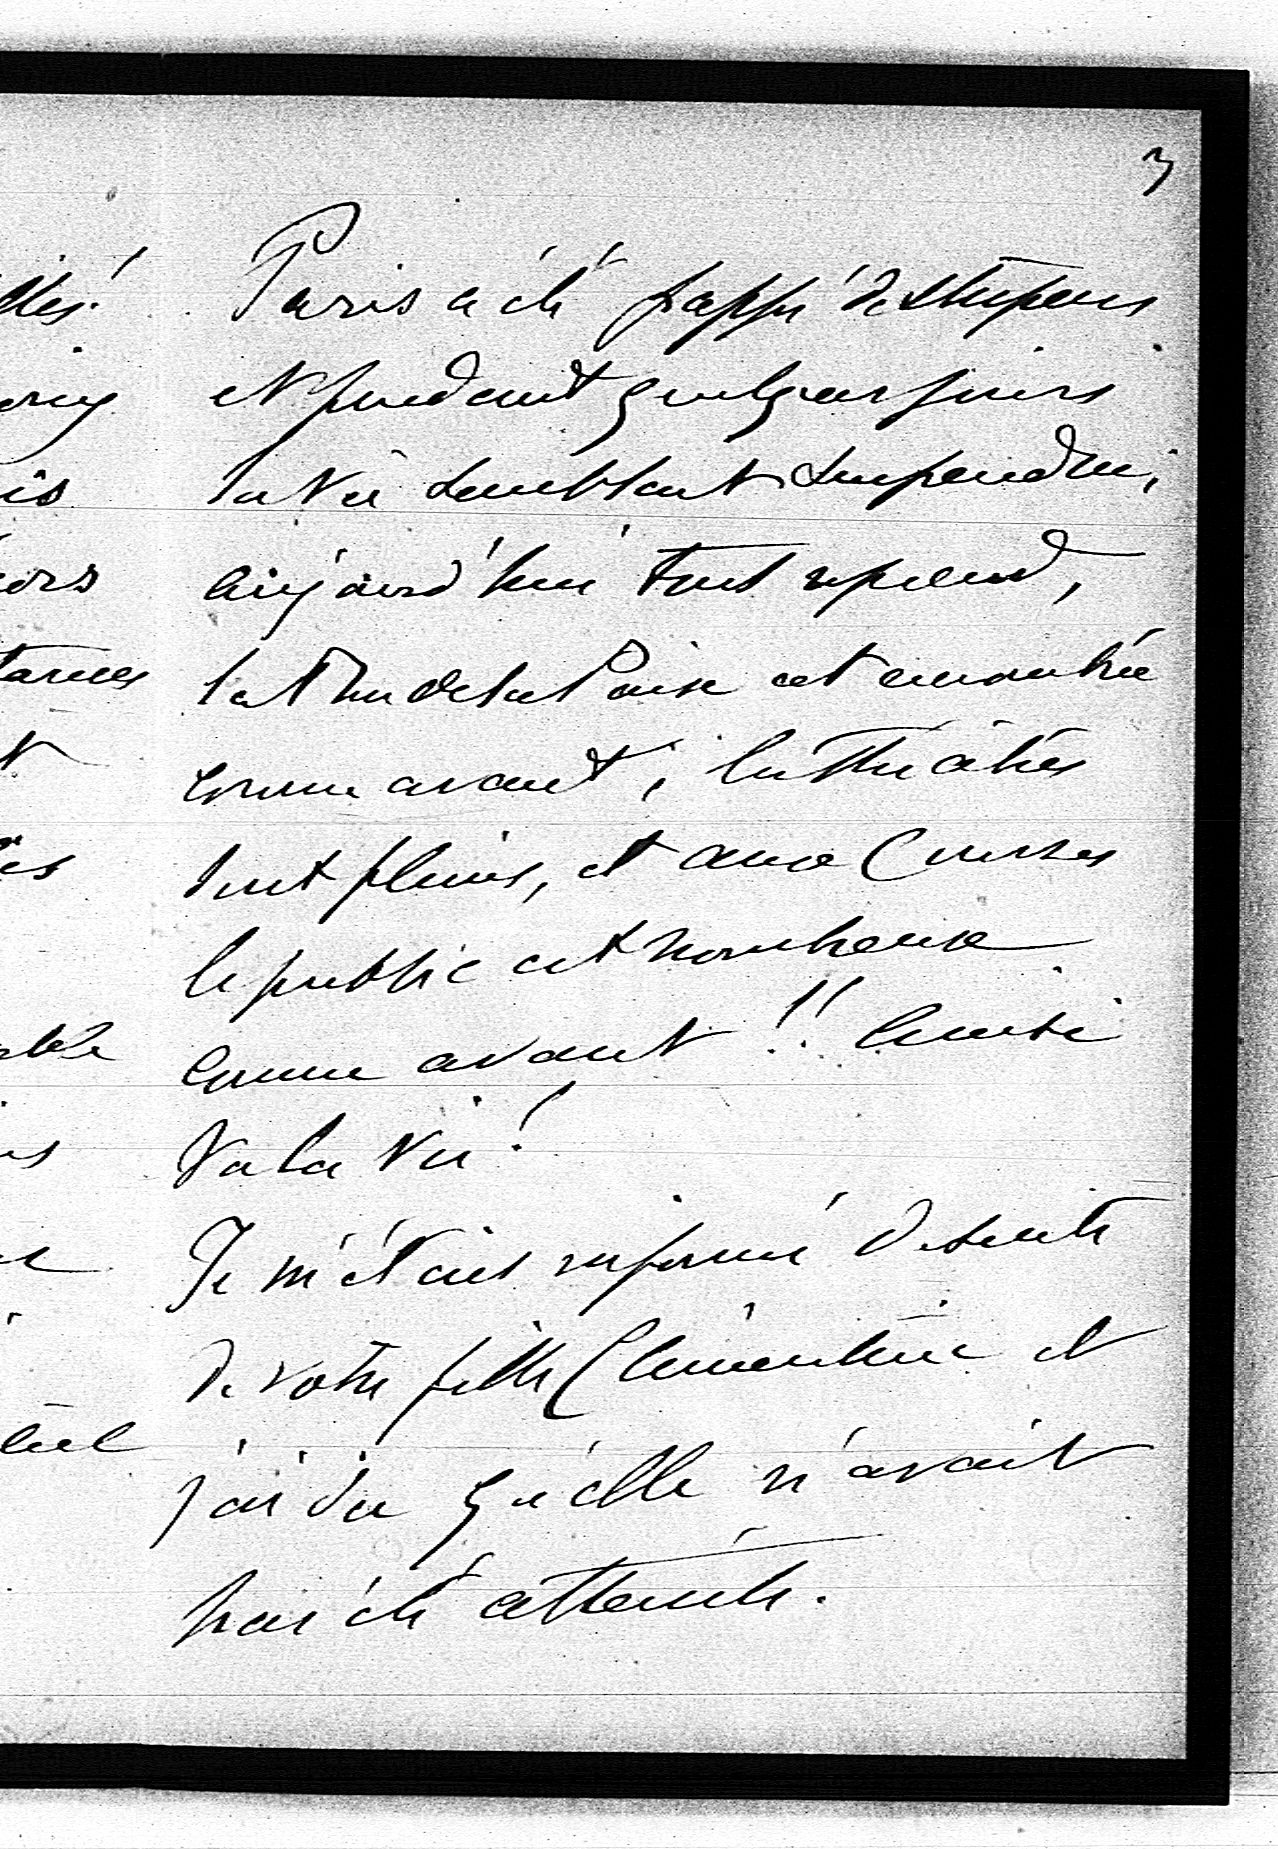 3
Paris a été frappé de stupeur
et pendant quelques jours
la vie semblait suspendue,
aujourd'hui tout reprend,
la Rue de la Paix est encombrée
comme avant, les Théâtres
sont pleins, et aux Courses
le public est nombreux
comme avant !! Ainsi
Va la vie !
Je m'étais informé de suite
de votre fille Clémentine et
j'ai su qu'elle n'avait
pas été atteinte.